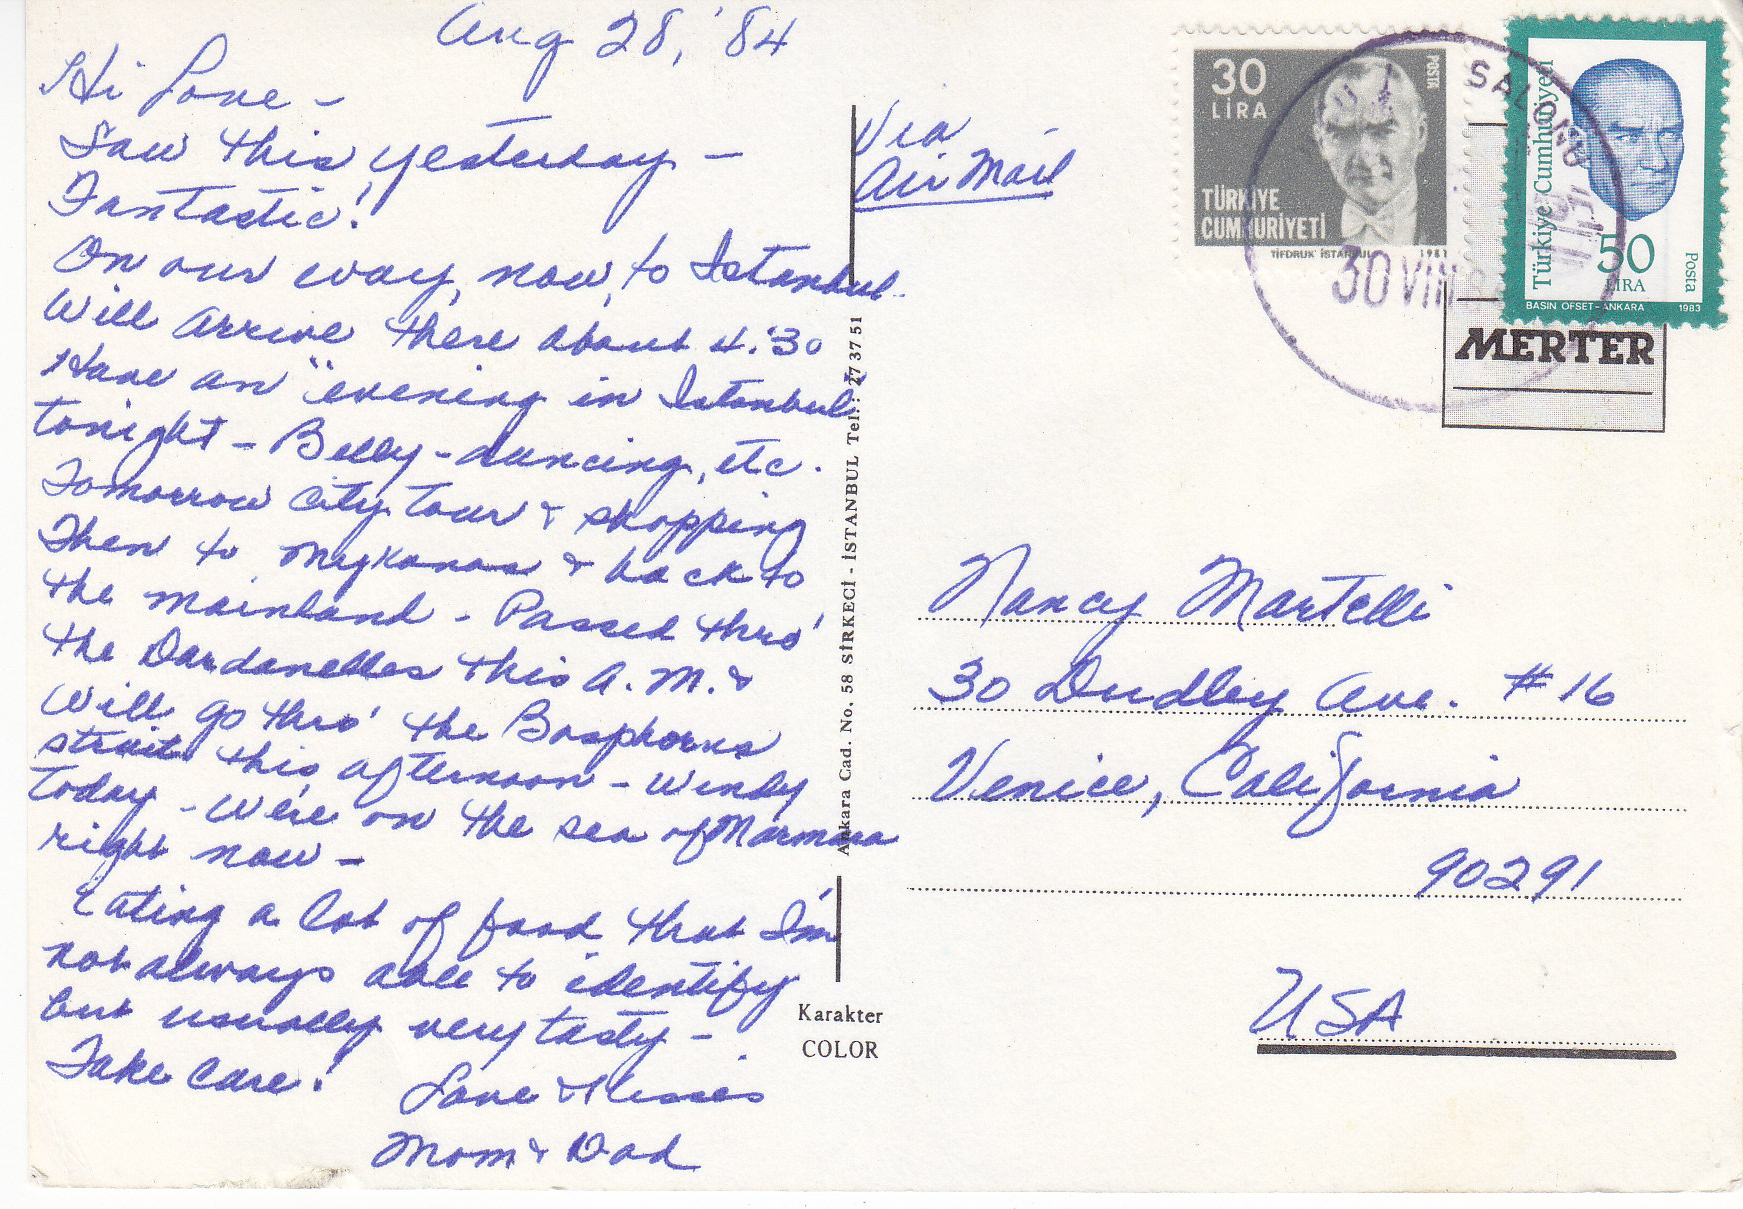 Aug 28, '84
Hi Love -
Saw this yesterday -
Fantastic!
On our way, now, to Istanbul.
Will arrive there about 4:30
Have an "evening in Istanbul"
tonight - Belly-dancing, etc.
Tomorrow city tour & shopping
Then to Mykonos & back to
the mainland - Passed thro'
the Dardanelles this A.M. &
will go thro' the Bosphorus
strait this afternoon - Windy
today - We're on the sea of Marmara
right now -
Eating a lot of food that I'm
not always able to identify
but usually very tasty -
Take care!
Love & Kisses
Mom & Dad
Via
Air Mail
Ankara Cad. No. 58 SİRKECİ - İSTANBUL Tel.: 27 37 51
Karakter
COLOR
30
LİRA
POSTA
TÜRKİYE
CUMHURİYETİ
TİFDRUK İSTANBUL 1981
SALONU
30 VIII
Türkiye Cumhuriyeti
50
LİRA
Posta
BASIN OFSET-ANKARA 1983
MERTER
Nancy Martelli
30 Dudley Ave. #16
Venice, California
90291
USA